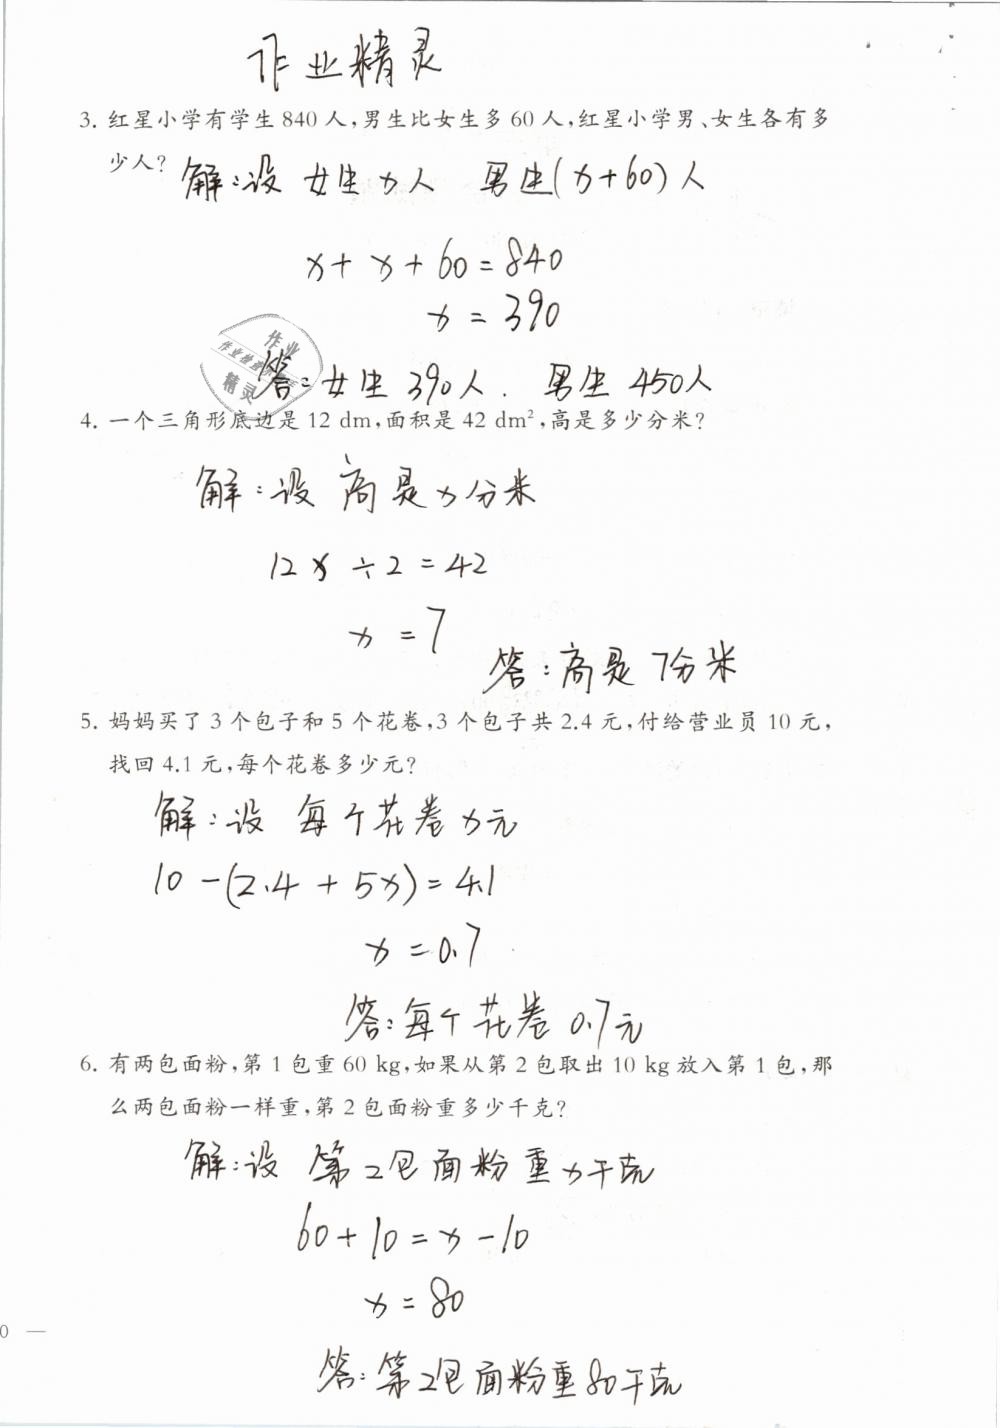 作业精灵
3. 红星小学有学生 840 人,男生比女生多 60 人,红星小学男、女生各有多
少人?
解:设 女生 x 人 男生(x+60)人
x + x + 60 = 840
x = 390
作业
作业检查
精灵
答:女生 390人. 男生 450人
4. 一个三角形底边是 12 dm,面积是 42 dm²,高是多少分米?
解:设 高是 x 分米
12x ÷ 2 = 42
x = 7
答:高是 7分米
5. 妈妈买了 3 个包子和 5 个花卷,3 个包子共 2.4 元,付给营业员 10 元,
找回 4.1 元,每个花卷多少元?
解:设 每个花卷 x元
10 -(2.4 + 5x)= 4.1
x = 0.7
答:每个花卷 0.7元
6. 有两包面粉,第 1 包重 60 kg,如果从第 2 包取出 10 kg 放入第 1 包,那
么两包面粉一样重,第 2 包面粉重多少千克?
解:设 第2包面粉重x千克
60 + 10 = x - 10
x = 80
0 —
答:第2包面粉重80千克